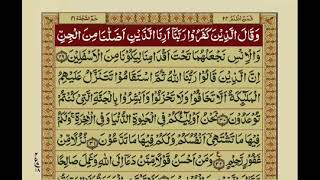 وَقَالَ الَّذِيْنَ كَفَرُوْا رَبَّنَاۤ اَرِنَا الَّذَيْنِ اَضَلّٰنَا مِنَ الْجِنِّ
وَالْاِنْسِ نَجْعَلْهُمَا تَحْتَ اَقْدَامِنَا لِيَكُوْنَا مِنَ الْاَسْفَلِيْنَ
اِنَّ الَّذِيْنَ قَالُوْا رَبُّنَا اللّٰهُ ثُمَّ اسْتَقَامُوْا تَتَنَزَّلُ عَلَيْهِمُ
الْمَلٰٓئِكَةُ اَلَّا تَخَافُوْا وَلَا تَحْزَنُوْا وَاَبْشِرُوْا بِالْجَنَّةِ الَّتِيْ كُنْتُمْ
نَحْنُ اَوْلِيٰٓؤُكُمْ فِي الْحَيٰوةِ الدُّنْيَا وَفِي الْاٰخِرَةِ وَلَكُمْ
فِيْهَا مَا تَشْتَهِيْۤ اَنْفُسُكُمْ وَلَكُمْ فِيْهَا مَا تَدَّعُوْنَ
غَفُوْرٍ رَّحِيْمٍ وَمَنْ اَحْسَنُ قَوْلًا مِّمَّنْ دَعَاۤ اِلَى اللّٰهِ وَعَمِلَ صَالِحًا